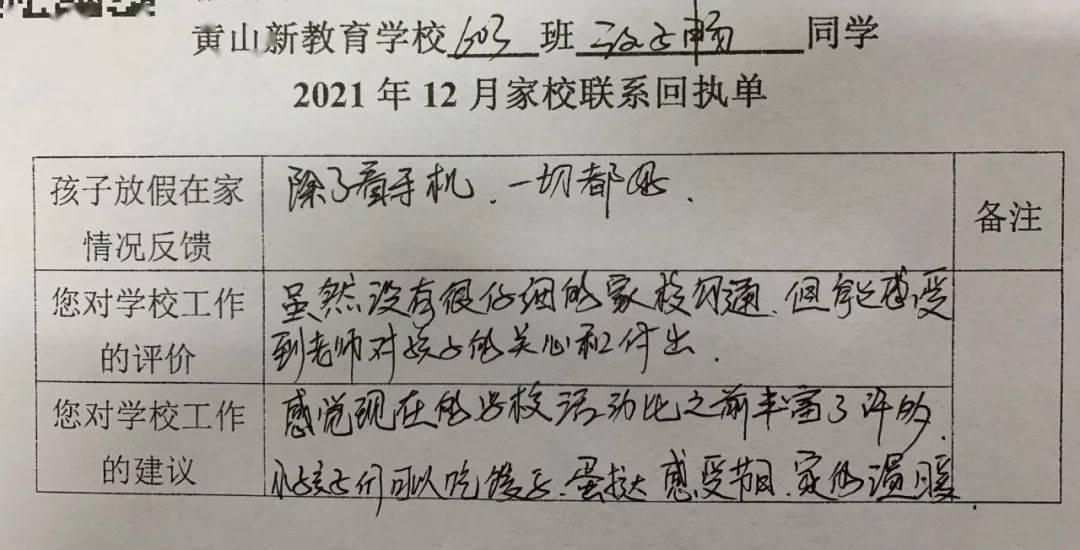 黄山新教育学校603班 子畅 同学
2021年12月家校联系回执单
孩子放假在家
情况反馈
除了看手机、一切都好.
备注
您对学校工作
的评价
虽然没有很仔细的家校沟通、但能感受
到老师对孩子的关心和付出.
您对学校工作
的建议
感觉现在的学校活动比之前丰富了许多.
小孩子们可以吃饺子、蛋挞 感受节日、家的温暖.